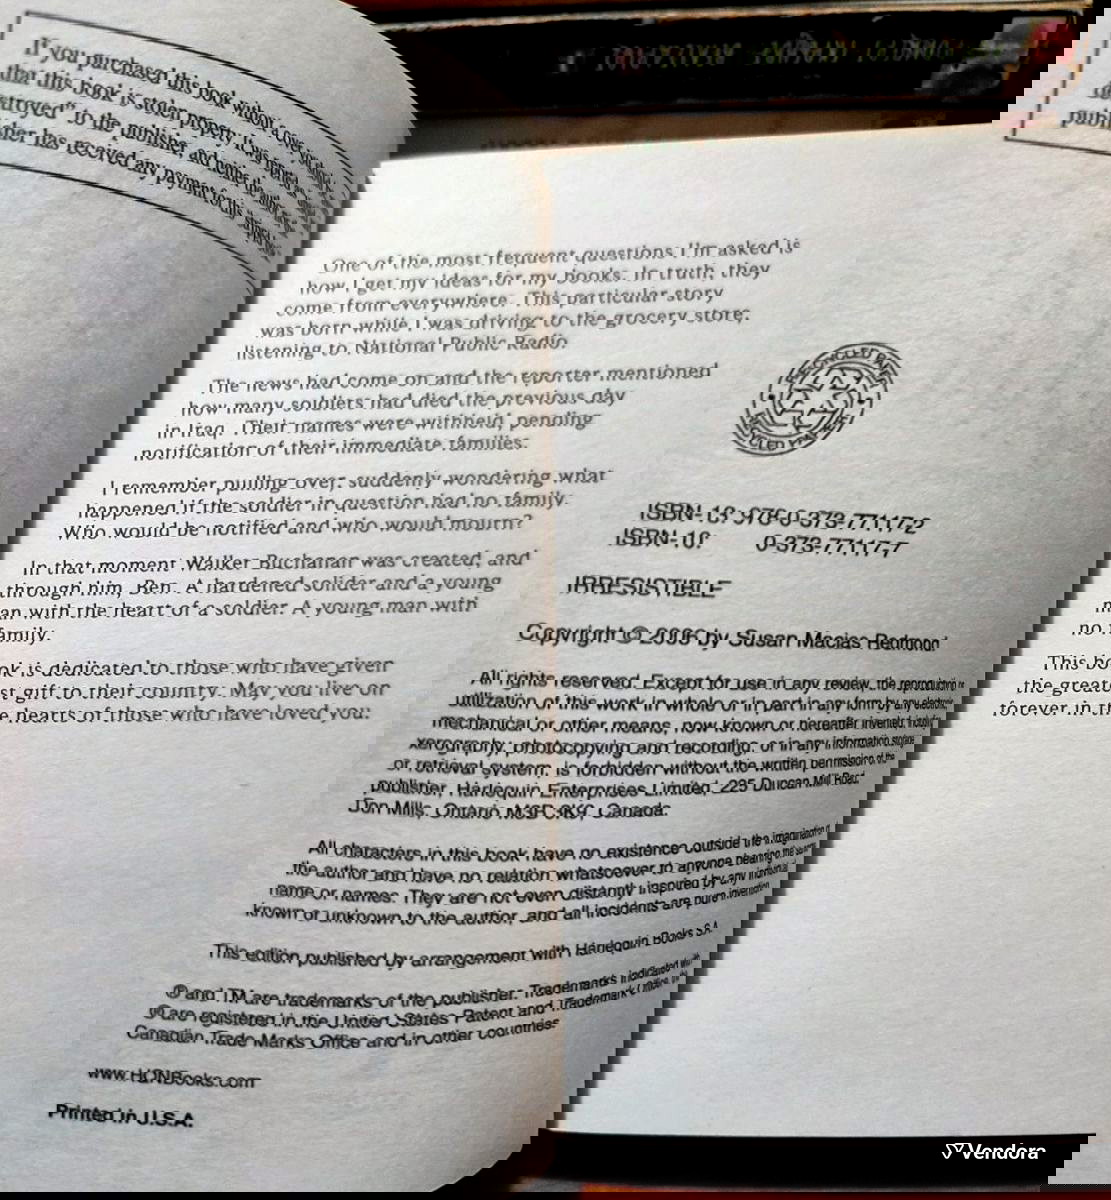 If you purchased this book without a cover you should
that this book is stolen property. It was reported as
destroyed" to the publisher, and neither the author nor the
publisher has received any payment for this
One of the most frequent questions I'm asked is
how I get my ideas for my books. In truth, they
come from everywhere. This particular story
was born while I was driving to the grocery store,
listening to National Public Radio.
The news had come on and the reporter mentioned
how many soldiers had died the previous day
in Iraq. Their names were withheld, pending
notification of their immediate families.
I remember pulling over, suddenly wondering what
happened if the soldier in question had no family.
Who would be notified and who would mourn?
In that moment Walker Buchanan was created, and
through him, Ben. A hardened solider and a young
man with the heart of a soldier. A young man with
no family.
This book is dedicated to those who have given
the greatest gift to their country. May you live on
forever in the hearts of those who have loved you.
RECYCLED PAPER
ISBN-13: 978-0-373-77117-2
ISBN-10: 0-373-77117-7
IRRESISTIBLE
Copyright © 2006 by Susan Macias Redmond
All rights reserved. Except for use in any review, the reproduction or
utilization of this work in whole or in part in any form by any electronic,
mechanical or other means, now known or hereafter invented, including
xerography, photocopying and recording, or in any information storage
or retrieval system, is forbidden without the written permission of the
publisher, Harlequin Enterprises Limited, 225 Duncan Mill Road,
Don Mills, Ontario M3B 3K9, Canada.
All characters in this book have no existence outside the imagination of
the author and have no relation whatsoever to anyone bearing the same
name or names. They are not even distantly inspired by any individual
known or unknown to the author, and all incidents are pure invention.
This edition published by arrangement with Harlequin Books S.A.
® and TM are trademarks of the publisher. Trademarks indicated with
® are registered in the United States Patent and Trademark Office, the
Canadian Trade Marks Office and in other countries.
www.HQNBooks.com
Printed in U.S.A.
Vendora